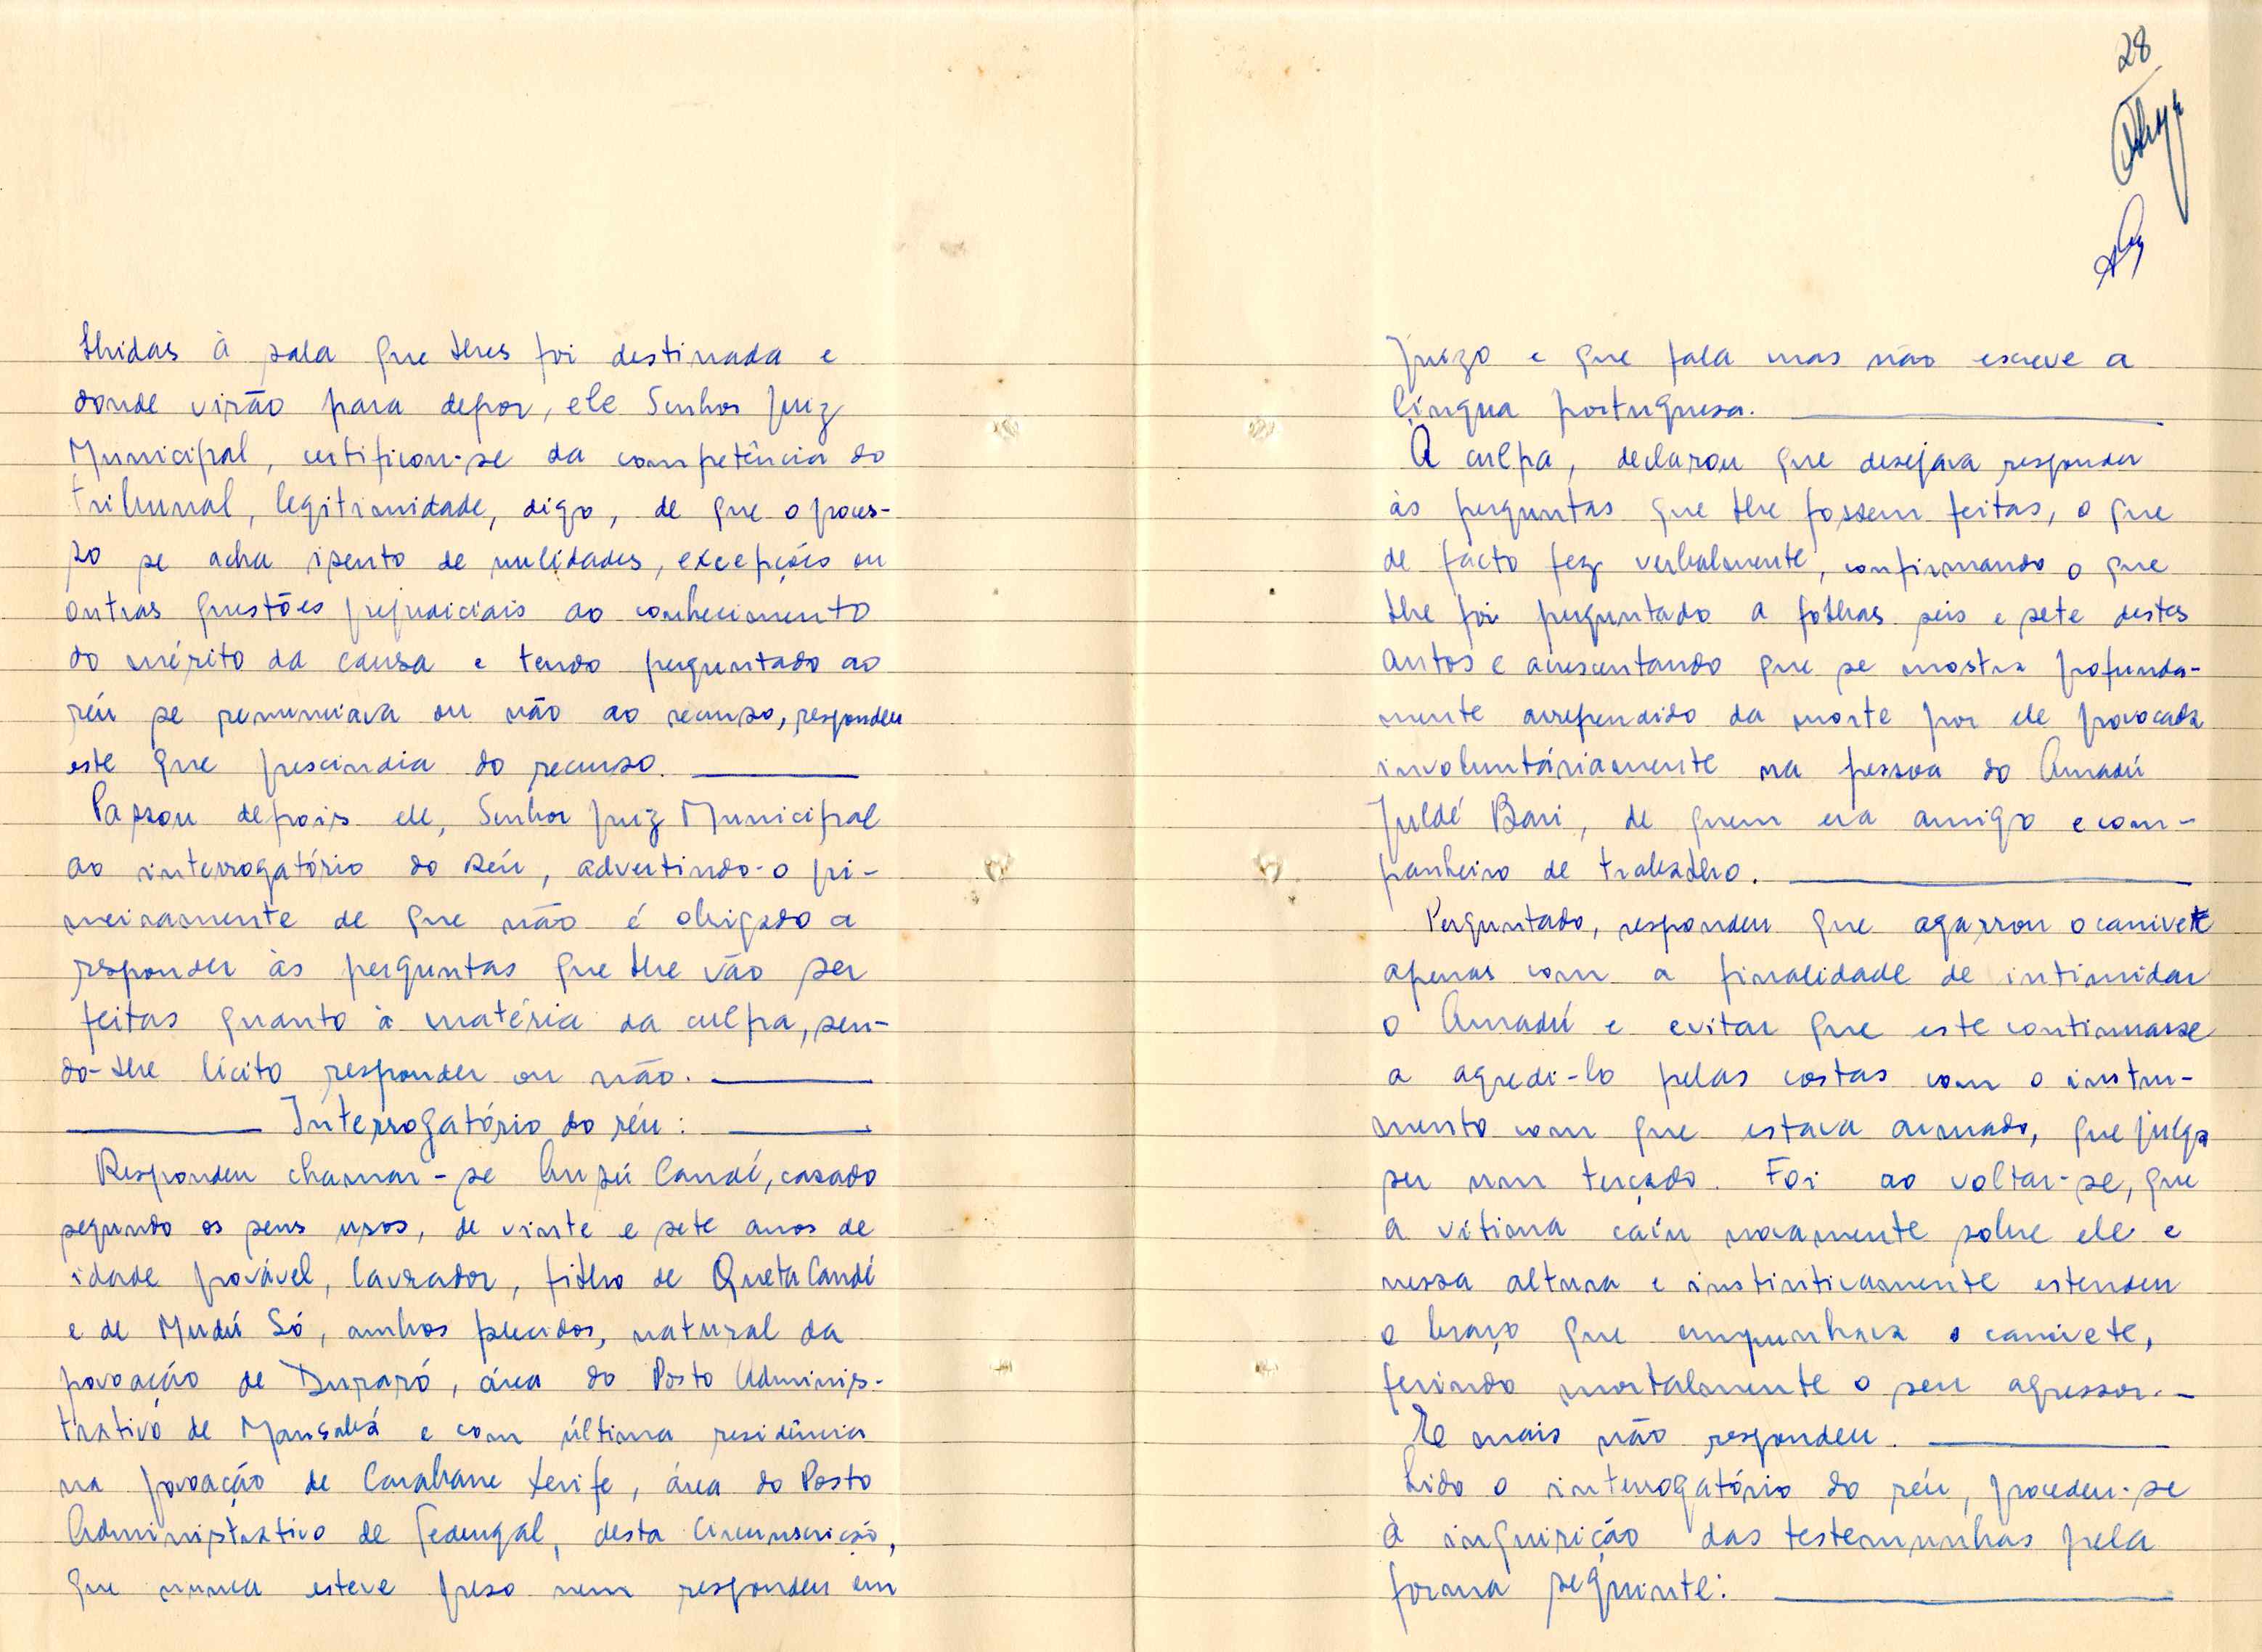 lhidas à sala que lhes foi destinada e
donde virão para depor, ele Senhor Juiz
Municipal, certificou-se da competência do
tribunal, legitimidade, digo, de que o proces-
so se acha isento de nulidades, excepções ou
outras questões prejudiciais ao conhecimento
do mérito da causa e tendo perguntado ao
réu se renunciava ou não ao recurso, respondeu
este que prescindia do recurso.
Passou depois ele, Senhor Juiz Municipal
ao interrogatório do Réu, advertindo-o pri-
meiramente de que não é obrigado a
responder às perguntas que lhe vão ser
feitas quanto à matéria da culpa, sen-
do-lhe lícito responder ou não.
Interrogatório do réu:
Respondeu chamar-se Ansú Candé, casado
segundo os seus usos, de vinte e sete anos de
idade provável, lavrador, filho de Queta Candé
e de Mudú Só, ambos falecidos, natural da
povoação de , área do Posto Adminis-
trativo de Mansabá e com última residência
na povoação de Xerife, área do Posto
Administrativo de , desta Circunscrição,
que nunca esteve preso nem respondeu em
28
juizo e que fala mas não escreve a
língua portuguesa.
À culpa, declarou que desejava responder
às perguntas que lhe fossem feitas, o que
de facto fez verbalmente, confirmando o que
lhe foi perguntado a folhas seis e sete destes
autos e acrescentando que se mostra profunda-
mente arrependido da morte por ele provocada
involuntáriamente na pessoa do Amadú
Juldé Bari, de quem era amigo e com-
panheiro de trabalho.
Perguntado, respondeu que agarrou o canivete
apenas com a finalidade de intimidar
o Amadú e evitar que este continuasse
a agredi-lo pelas costas com o instru-
mento com que estava armado, que julga
ser um terçado. Foi ao voltar-se, que
a vítima caíu novamente sobre ele e
nessa altura e instintivamente estendeu
o braço que empunhava o canivete,
ferindo mortalmente o seu agressor.-
E mais não respondeu.
Lido o interrogatório do réu, procedeu-se
à inquirição das testemunhas pela
forma seguinte: